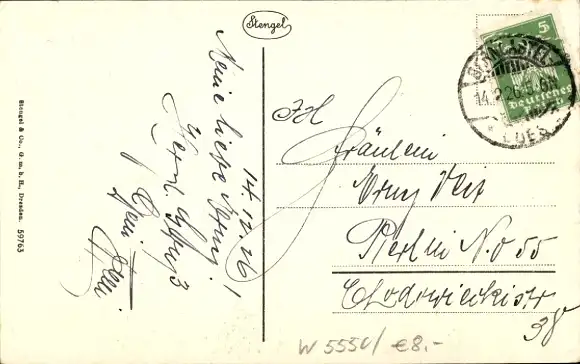 Stengel
Stengel & Co., G. m. b. H., Dresden. 59763
14.12.26
Meine liebe Erny!
Herzl. Gruß
Dein
5
14.12.26
Deutsches
CUES
Fräulein
Erny Veit
Berlin N.O 55
Chodowieckistr
38
W 5550/ €8.-